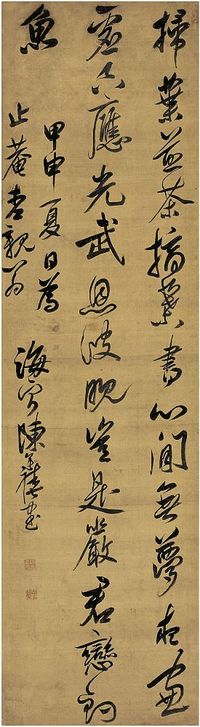 掃葉煎茶摘葉書心閒無夢夜窗
虛只應光武恩波晚豈是嚴君戀釣
魚
甲申夏日為
止菴老親翁
海寧陳奕禧